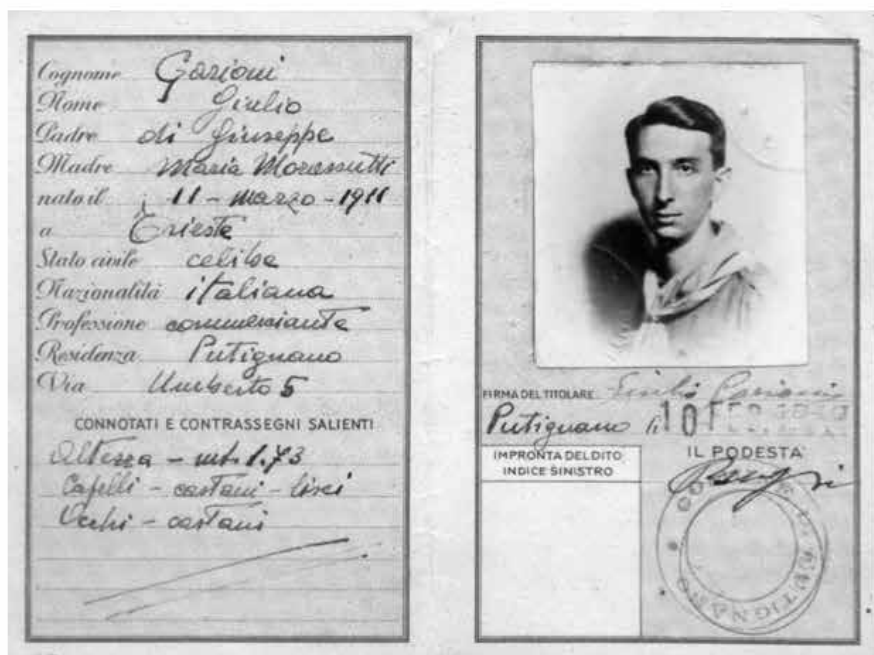 Cognome Garioni
Nome Giulio
Padre di Giuseppe
Madre Maria Morassutti
nato il 11 - marzo - 1911
a Trieste
Stato civile celibe
Nazionalità italiana
Professione commerciante
Residenza Putignano
Via Umberto 5
CONNOTATI E CONTRASSEGNI SALIENTI
Altezza - mt. 1.73
Capelli - castani - lisci
Occhi - castani
FIRMA DEL TITOLARE Giulio Garioni
Putignano li 10 FEB.
IMPRONTA DEL DITO
INDICE SINISTRO
IL PODESTA'
COMUNE DI PUTIGNANO